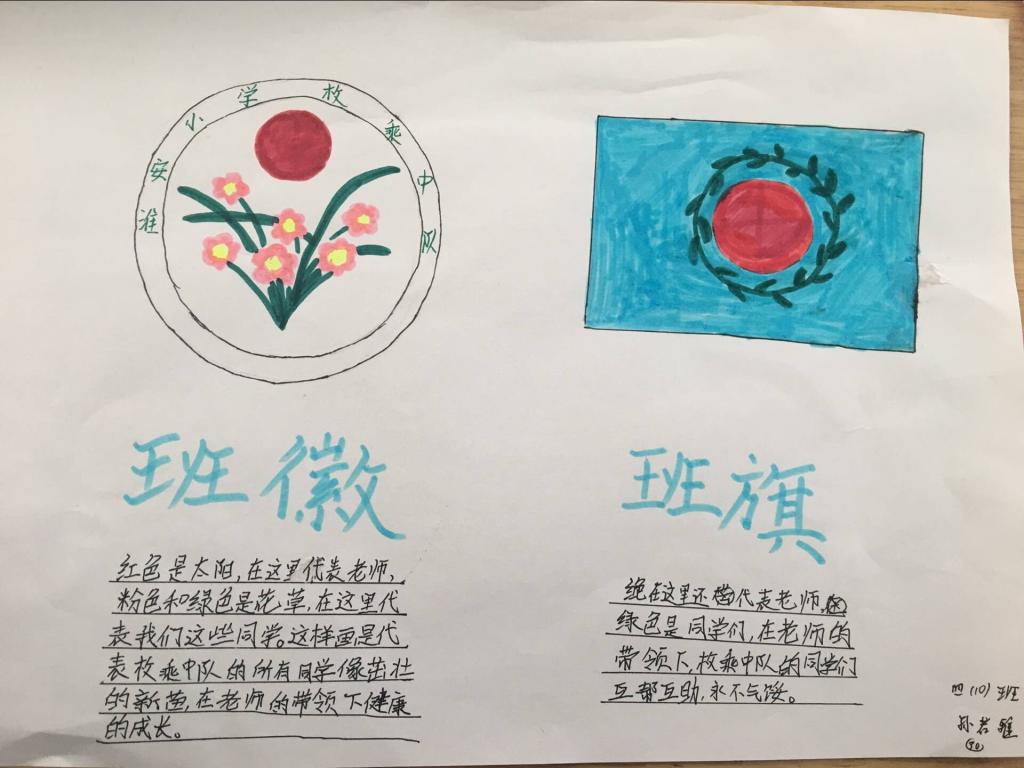 淮安小学枚乘中队
班徽
红色是太阳,在这里代表老师,
粉色和绿色是花草,在这里代
表我们这些同学。这样画是代
表枚乘中队的所有同学像茁壮
的新苗,在老师的带领下健康
的成长。
班旗
在这里还代表老师,
绿色是同学们,在老师的
带领下,枚乘中队的同学们
互帮互助,永不气馁。
四(10)班
孙若